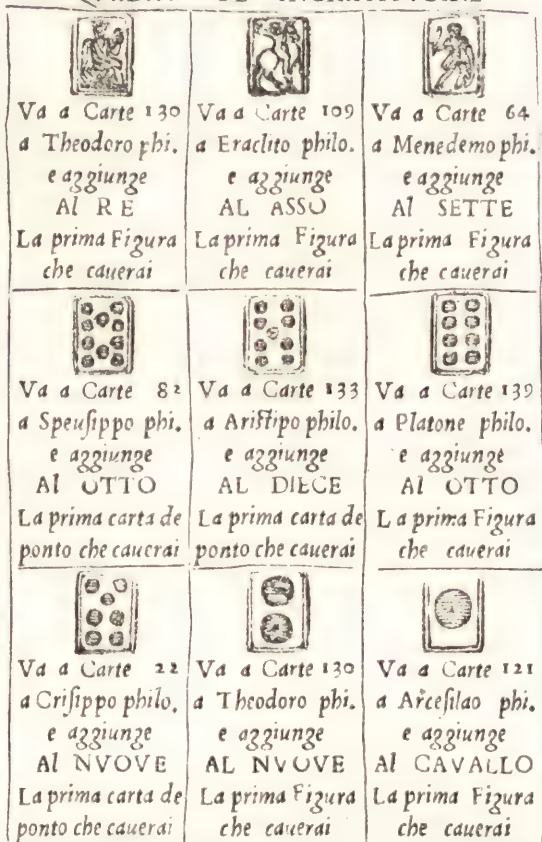 Va a Carte 130
a Theodoro phi.
e aggiunge
Al RE
La prima Figura
che cauerai
Va a Carte 109
a Eraclito philo.
e aggiunge
AL ASSO
La prima Figura
che cauerai
Va a Carte 64
a Menedemo phi.
e aggiunge
Al SETTE
La prima Figura
che cauerai
Va a Carte 82
a Speuſippo phi.
e aggiunge
Al OTTO
La prima carta de
ponto che cauerai
Va a Carte 133
a Ariſtipo philo.
e aggiunge
AL DIECE
La prima carta de
ponto che cauerai
Va a Carte 139
a Platone philo.
e aggiunge
Al OTTO
La prima Figura
che cauerai
Va a Carte 22
a Criſippo philo.
e aggiunge
Al NVOVE
La prima carta de
ponto che cauerai
Va a Carte 130
a Theodoro phi.
e aggiunge
AL NVOVE
La prima Figura
che cauerai
Va a Carte 121
a Arceſilao phi.
e aggiunge
Al CAVALLO
La prima Figura
che cauerai